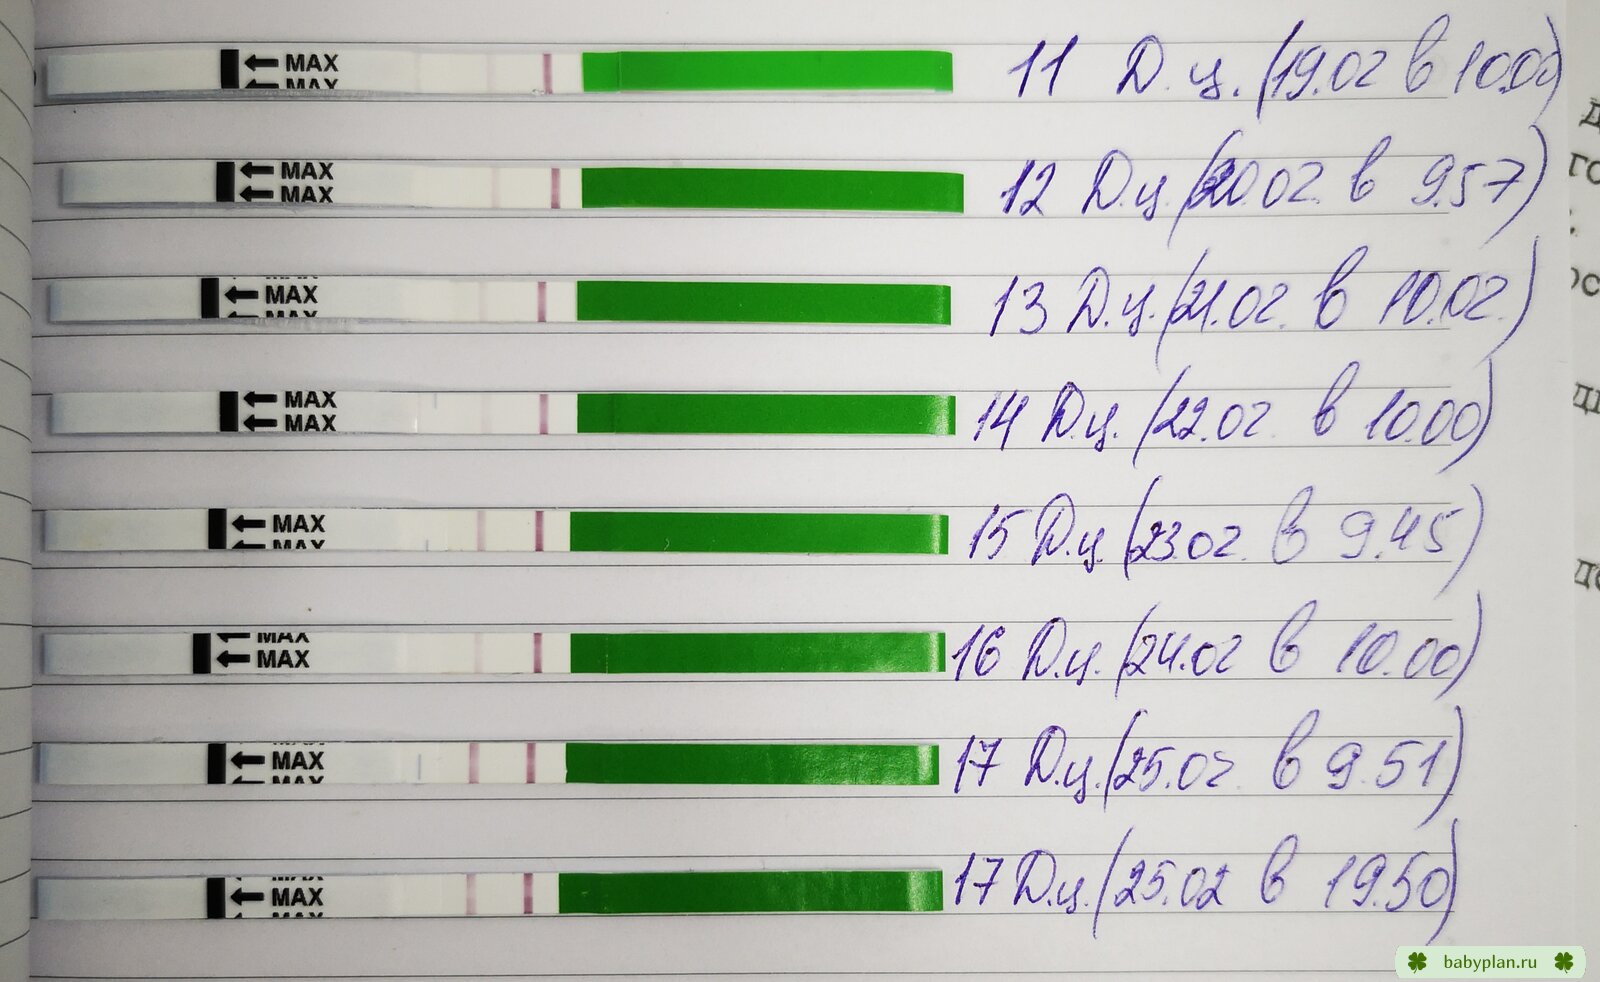 MAX 11 Д.ц. (19.02 в 10.00)
MAX
MAX 12 Д.ц. (20.02. в 9.57)
MAX
MAX 13 Д.ц. (21.02. в 10.02.)
MAX
MAX 14 Д.ц. (22.02. в 10.00)
MAX
MAX 15 Д.ц. (23.02. в 9.45)
MAX
MAX
MAX 16 Д.ц. (24.02 в 10.00)
MAX 17 Д.ц. (25.02. в 9.51)
MAX
MAX
MAX 17 Д.ц. (25.02 в 19.50)
MAX
babyplan.ru